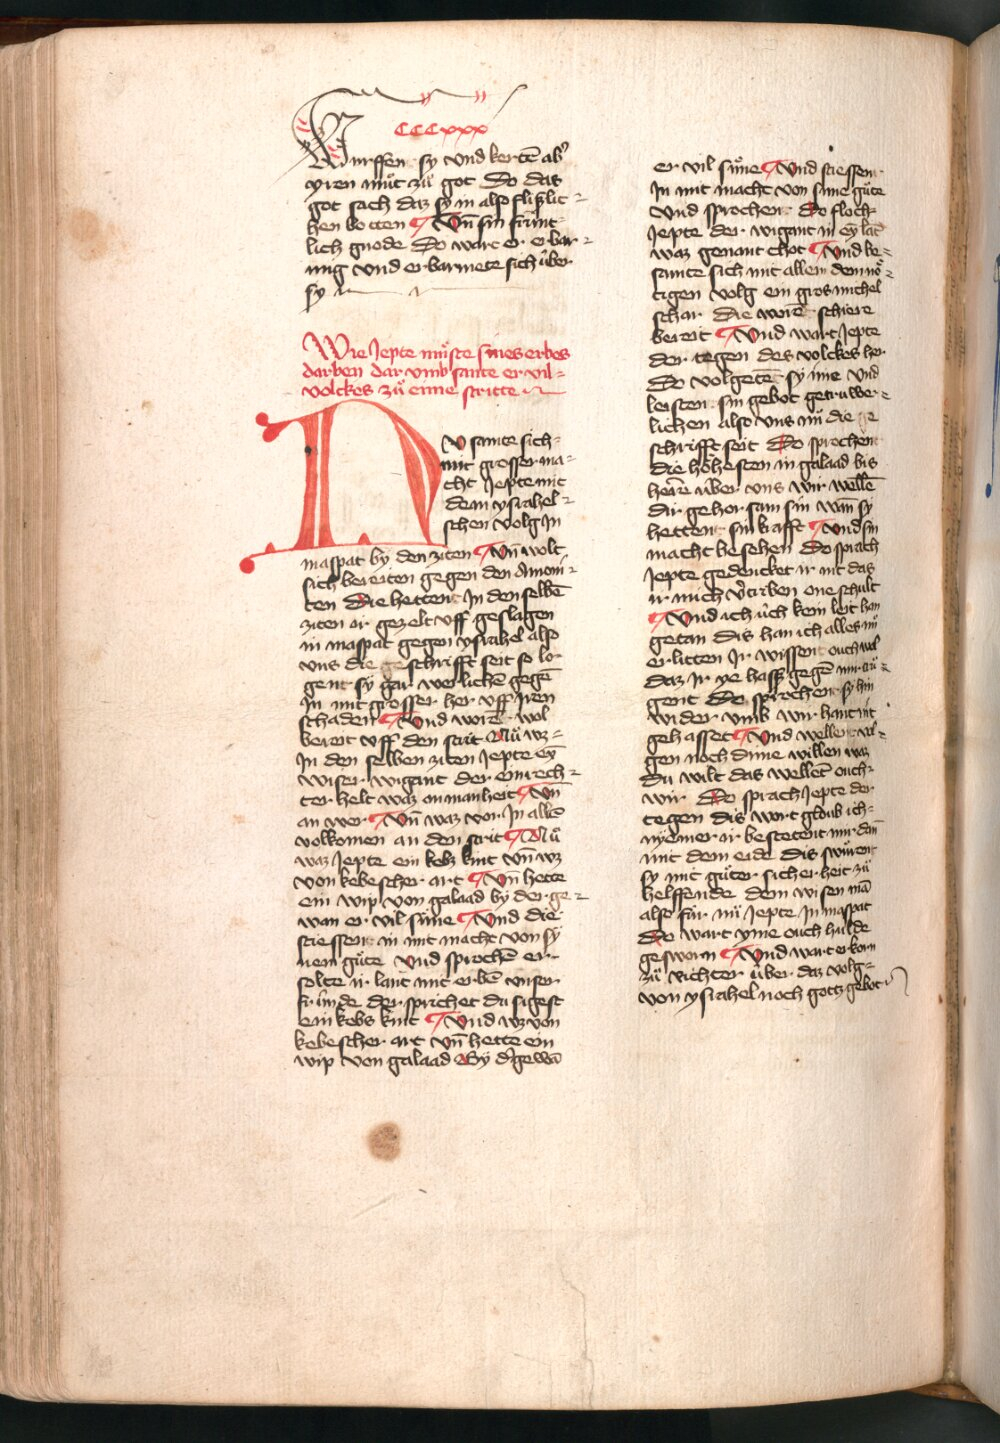 CCCxxx
Wurffen sy vnd kertē ab̉
yren můt zů got Do das
got sach daz sy in also flißlic-
hen botten Vn̄ sin frúnt-
lich gnode Do wart er erbar-
mig vnd erbarmete sich úber
sy
Wie Jepte můste sines erbes
darben dar vmb sante er vil-
volckes zů eime stritte
NV sante sich-
mit grosser ma-
cht Jepte mit
dem ysrahel-
schen volg In
maspat by den ziten Vn̄ wolt
sich bereiten gegen den Amoni-
ten Die hettent In den selbē
ziten ir gezelt vff geslagen
in maspat gegen ysrahel also
vns die geschrifft seit so lo-
gent sy gar werlichē gegē
In mit grosser her vff Iren
schaden Vnd worēt wol
bereit vff den strit Nů wz-
In den selben ziten Jepte eȳ
wiser wigant der einrech-
ter helt waz an manheit Vn̄
an wer Vn̄ waz vor In allē
volkomen an den strit Nů
waz Jepte ein kebz kint vn̄ wz
von kebescher art Vn̄ hette
ein wip von galaad by der ge-
wan er vil súne Vnd die
stiessent in mit macht von sy
nem gůte Vnd sprochē er-
solte ir lant nit erbē vnser
frúnde der sprichet du sigest
ein kebs kint Vnd wz von
kebescher art vn̄ hette ein
wip von galaad By d̉ gewā
er vil súne Vnd stiessen
In mit macht von sime gůte
Vnd sprochent Do floch-
Jepte der wigant in ey lāt
waz genant thot Vnd be-
sante sich mit allem dem nȯ-
tigen volg ein gros michel
schar die worēt schiere
bereit Vnd wart Jepte
der tegen des volckes her
Do volgetē sy ime Vnd
leisten sin gebot getruwer-
lichen also vns nů die ge
schrifft seit Do sprochent
die hȯhesten in galaad bis
herre úber vns wir wellē
dir gehorsam sin wan̄ sy
hettent sin krafft Vnd sin
macht besehen Do sprach
Jepte gedencket ir nit das
ir mich v̉tirben one schult
Vnd ich úch kein leit han
getan dis han ich alles nů
erlitten Ir wissent ouch wol
daz Ir ye hassz gegē mir trů-
gent Do sprochent sy hin
wider vmb wir hant nit
gehasset Vnd wellent vol-
gen noch dime willen waz
du wilt das wellēt ouch-
wir Do sprach Jepte der
tegen dis wort gloub ich-
nyemer ir bestetent mir dan̄
mit dem eide Dis swůrent
sy mit gůter sicherheit zů
helffende dem wisen mā
also fůr nů Jepte In maspat
Do wart yme ouch hulde
gesworn Vnd wart erkorn
zů Richter úber daz volg-
von ysrahel noch gotz gebot